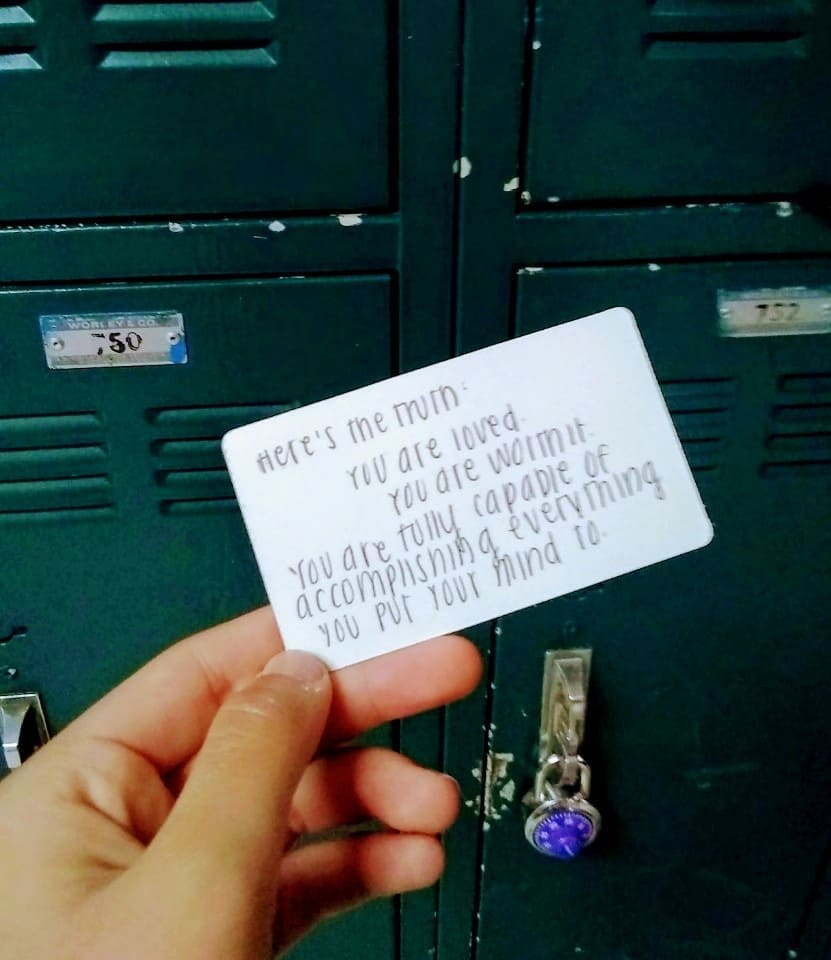 WORLEY & CO.
750
732
Here's the truth:
You are loved.
You are worth it.
You are fully capable of
accomplishing everything
you put your mind to.